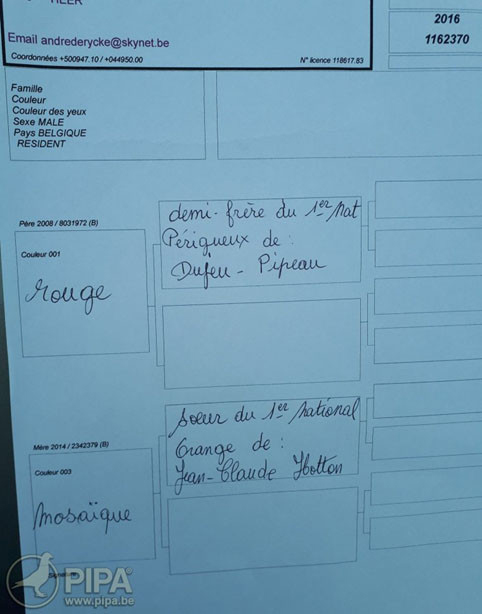 HEER
Email andrederycke@skynet.be
Coordonnées +500947.10 / +044950.00
N° licence 118617.83
2016
1162370
Famille
Couleur
Couleur des yeux
Sexe MALE
Pays BELGIQUE
RESIDENT
Père 2008 / 8031972 (B)
Couleur 001
rouge
demi-frère du 1er Nat
Périgueux de :
Dufeu - Pipeau
Mère 2014 / 2342379 (B)
Couleur 003
mosaïque
soeur du 1er National
Orange de :
Jean-Claude Hotton
Signature
PIPA
www.pipa.be